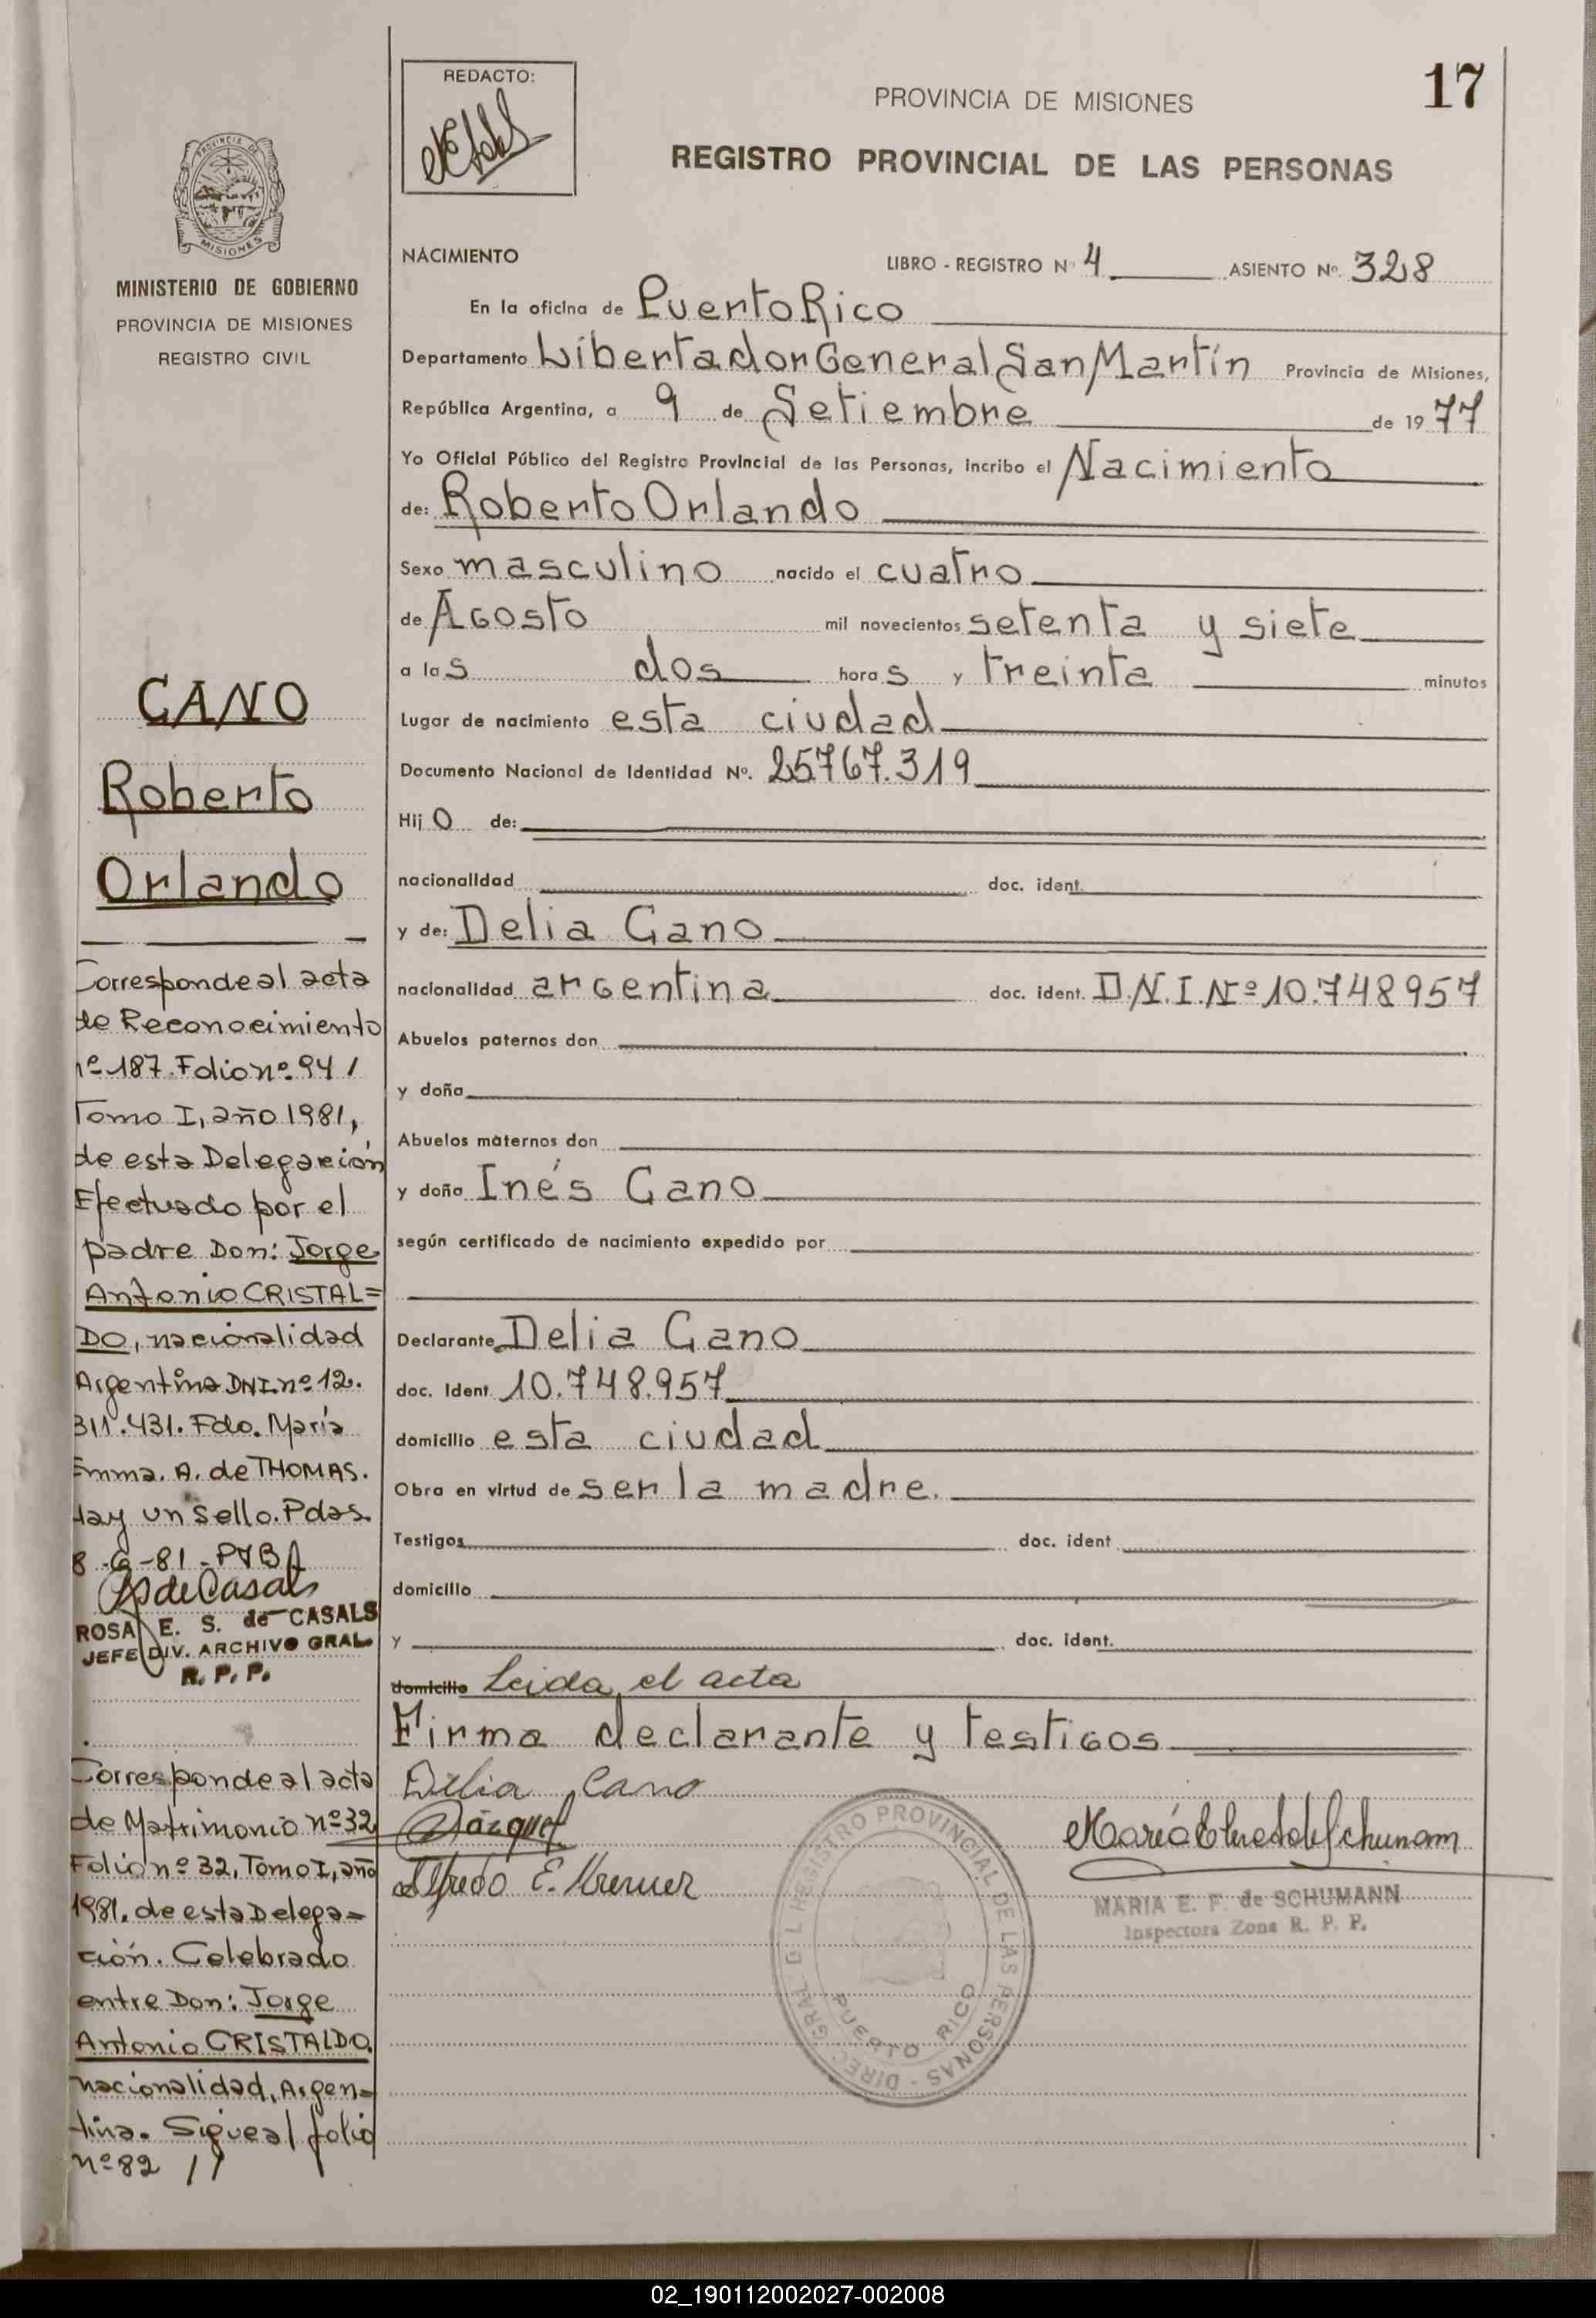 17
REDACTO:
PROVINCIA DE MISIONES
REGISTRO PROVINCIAL DE LAS PERSONAS
PROVINCIA DE
MISIONES
MINISTERIO DE GOBIERNO
PROVINCIA DE MISIONES
REGISTRO CIVIL
CANO
Roberto
Orlando
Corresponde al acta
de Reconocimiento
nº 187. Folio nº 94 /
Tomo I, año 1981,
de esta Delegación
Efectuado por el
padre Don: Jorge
Antonio CRISTAL=
DO, nacionalidad
Argentina DNI. nº 12.
311.431. Fdo. María
Emma. A. de THOMAS.
Hay un sello. Pdas.
ROSA E. S. de CASALS
JEFE DIV. ARCHIVO GRAL.
R. P. P.
Corresponde al acta
de Matrimonio nº 32
Folio nº 32, Tomo I, año
1981. de esta Delega=
ción. Celebrado
entre Don: Jorge
Antonio CRISTALDO.
nacionalidad, Argen=
tina. Sigue al folio
nº 82 //
NACIMIENTO LIBRO - REGISTRO Nº 4 ASIENTO Nº. 328
En la oficina de Puerto Rico
Departamento Libertador General San Martín Provincia de Misiones,
República Argentina, a 9 de Setiembre de 1977
Yo Oficial Público del Registro Provincial de las Personas, incribo el Nacimiento
de: Roberto Orlando
Sexo masculino nacido el cuatro
de Agosto mil novecientos setenta y siete
a las dos horas y treinta minutos
Lugar de nacimiento esta ciudad
Documento Nacional de Identidad Nº. 25767.319
Hijo de:
nacionalidad doc. ident.
y de: Delia Cano
nacionalidad argentina doc. ident. D.N.I.Nº 10.748957
Abuelos paternos don
y doña
Abuelos maternos don
y doña Inés Cano
según certificado de nacimiento expedido por
Declarante Delia Cano
doc. Ident. 10.748.957
domicilio esta ciudad
Obra en virtud de ser la madre.
Testigos doc. ident
domicilio
y doc. ident.
domicilio Leida el acta
Firma declarante y testigos
Delia Cano
Alfredo E.
MARIA E. F. de SCHUMANN
Inspectora Zona R. P. P.
DIREC. GRAL DEL REGISTRO PROVINCIAL DE LAS PERSONAS -
PUERTO RICO
02_190112002027-002008